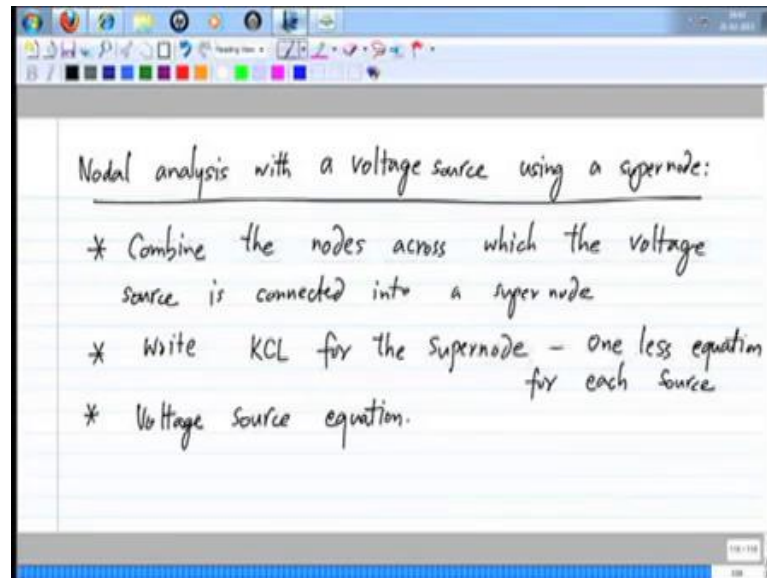 Nodal analysis with a voltage source using a supernode:
* Combine the nodes across which the voltage
source is connected into a super node
* Write KCL for the Supernode - One less equation
for each Source
* Voltage Source equation.